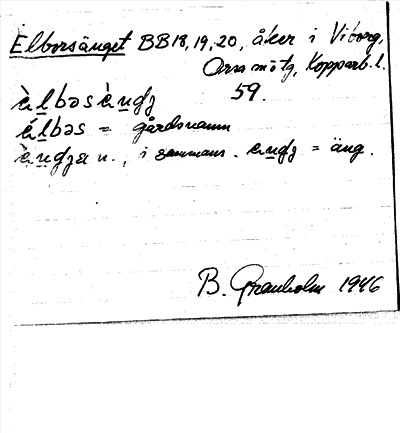 Elborsänget BB18,19,20, åker i Viborg,
Orsa mötg, Kopparb.l.
59.
èlbəsèŋdʒ
élbəs = gårdsnamn
èŋdʒa n., i sammans. eŋdʒ = äng.
B. Granholm 1946